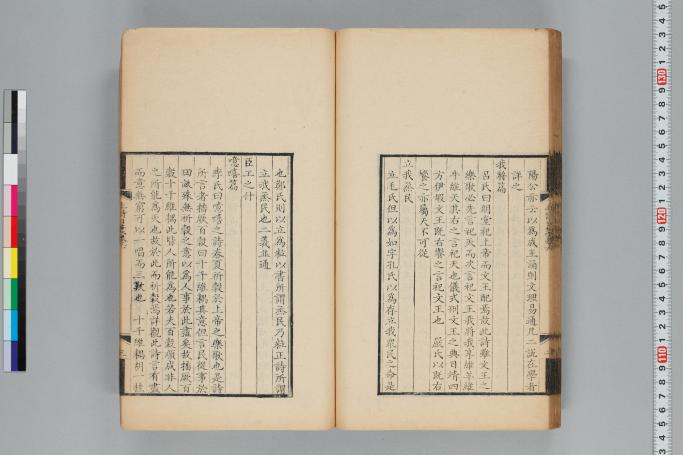 陽公亦云以為成王誦則文理易通凡二說在學者
詳之
我將篇
呂氏曰明堂祀上帝而文王配焉故此詩雖文王之
樂歌必先言祀天而次言祀文王我將我享維羊維
牛維天其右之言祀天也儀式刑文王之典日靖四
方伊嘏文王既右饗之言祀文王也 嚴氏以既右
饗之亦屬天不可從
立我烝民
立毛氏但以為如字孔氏以為存立我衆民之命是
也鄭氏則以立為粒以書所謂烝民乃粒正詩所謂
立我烝民也二義並通
臣工之什
噫嘻篇
李氏曰噫嘻之詩春夏祈穀於上帝之樂歌也是詩
所言者播厥百穀曰十千維耦其意但言民從事於
田畝殊無祈穀之意以為人事於此盡矣故播厥百
穀十千維耦此皆人所能為也若夫百穀順成非人
之所能為天也故於此而祈穀焉詳觀此詩言有盡
而意無窮可以一唱而三歎也 十千維耦朝一桂